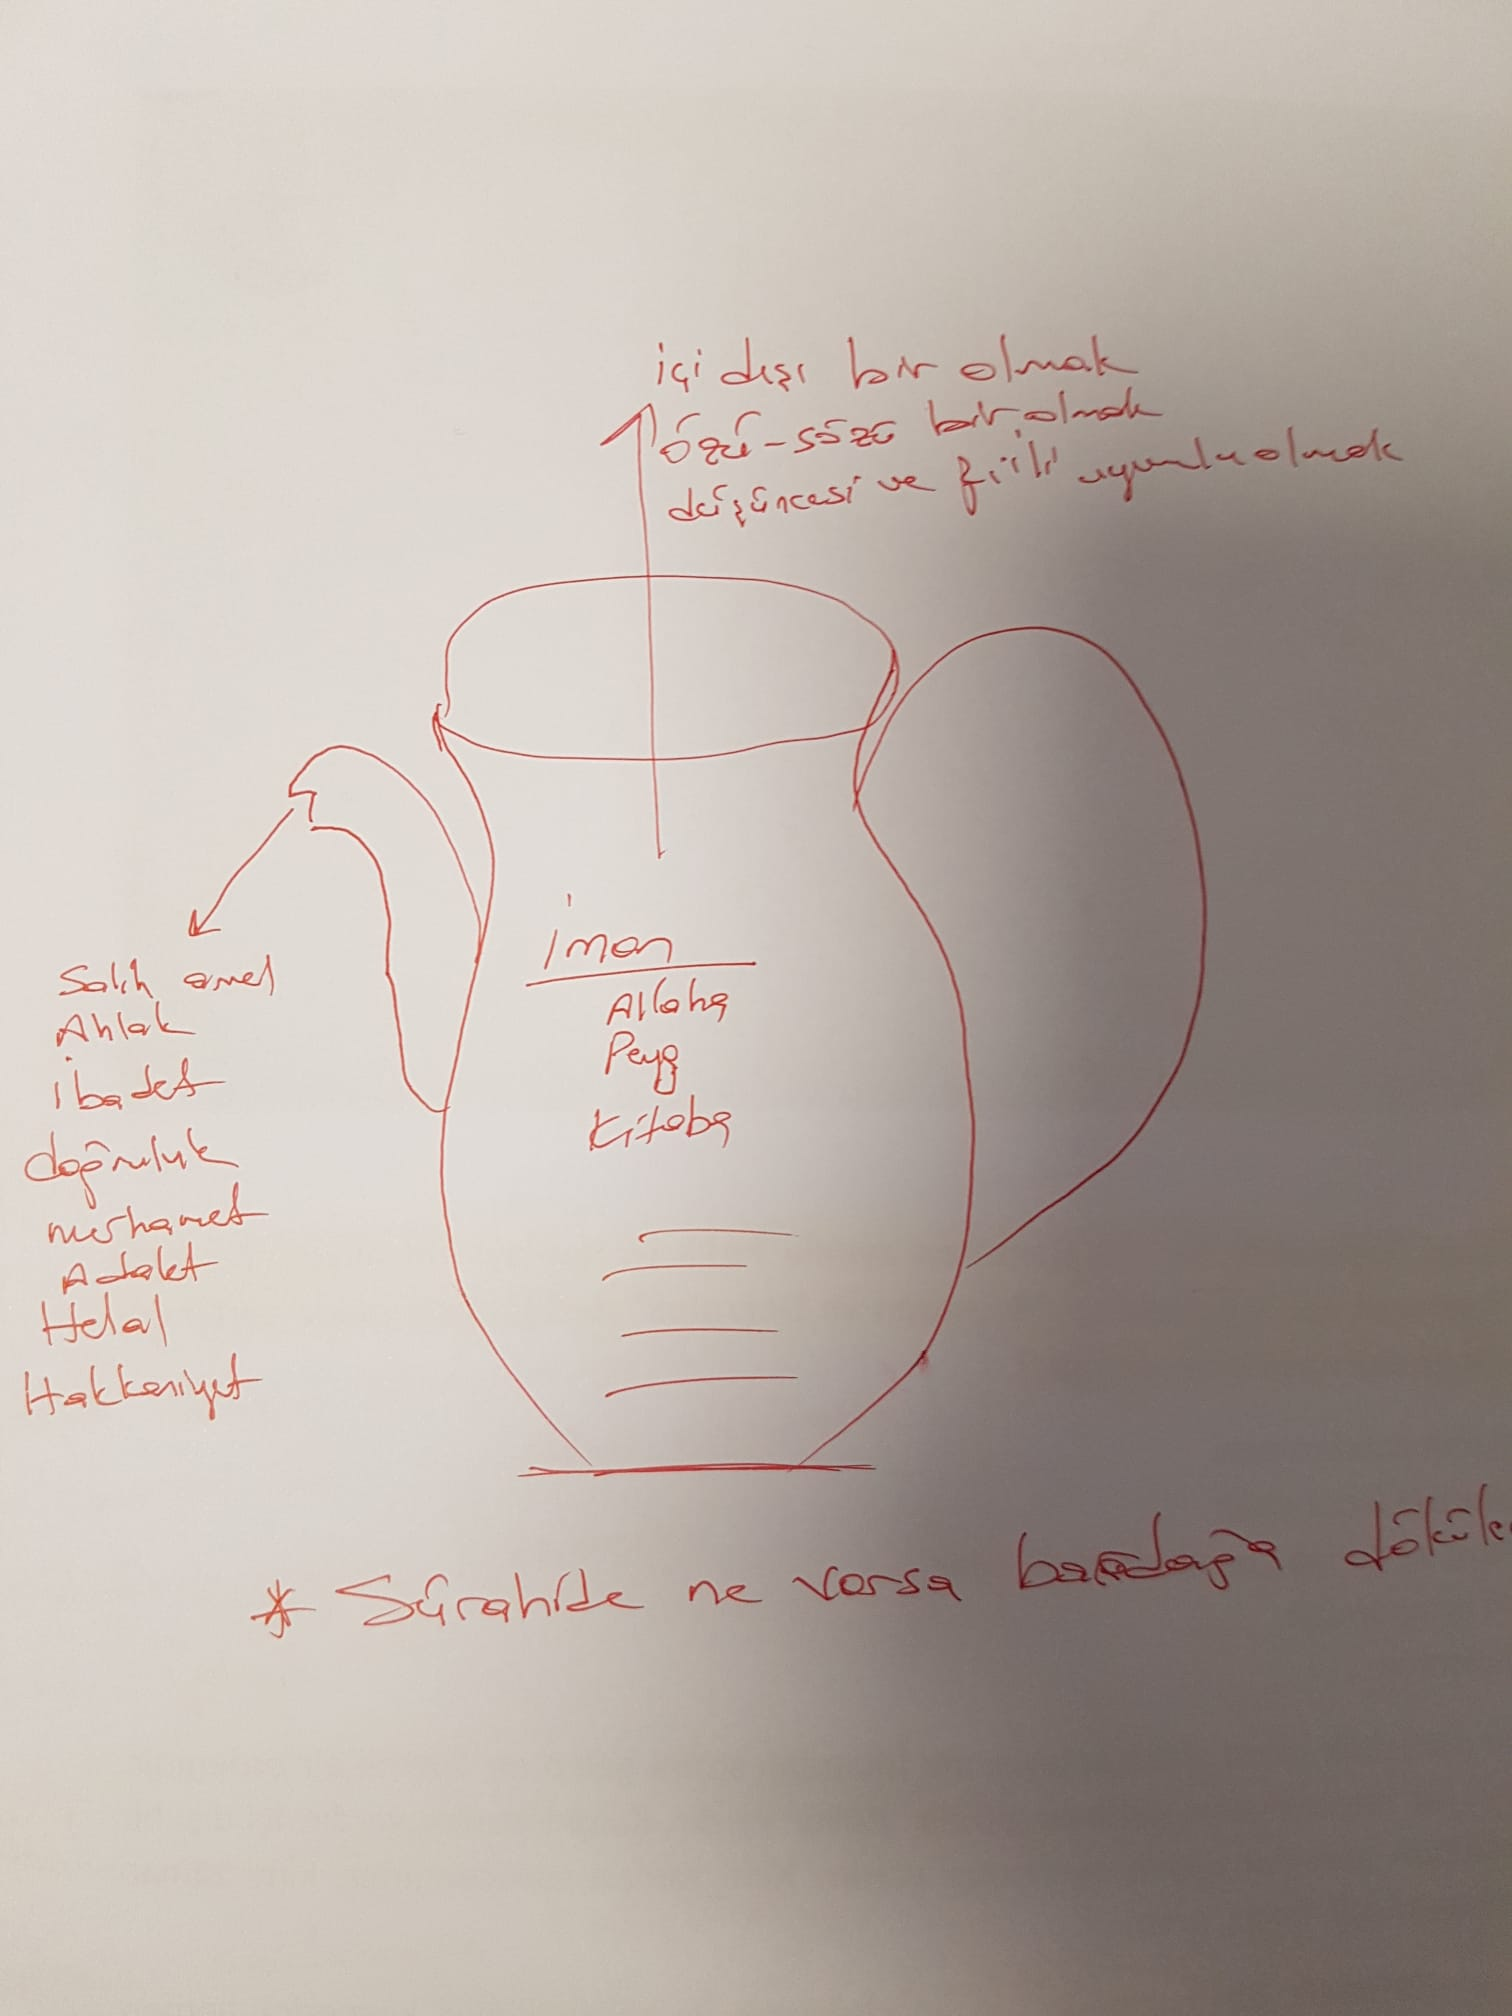 içi dışı bir olmak
özü-sözü bir olmak
düşüncesi ve fiili uyumlu olmak
iman
Allaha
Peyg
Kitaba
Salih amel
Ahlak
ibadet
doğruluk
merhamet
Adalet
Helal
Hakkaniyet
* Sürahide ne varsa bardağa döküle